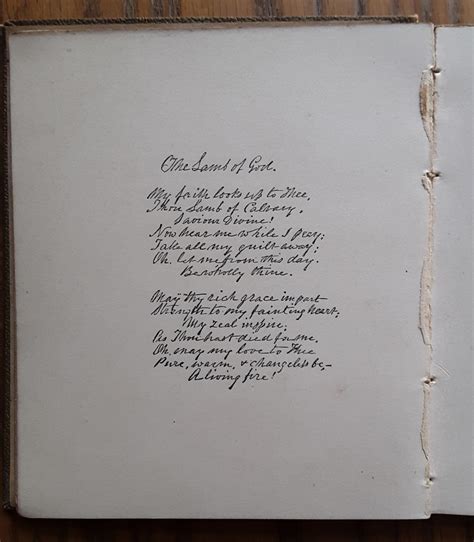 The Lamb of God.
My faith looks up to Thee,
Thou Lamb of Calvary,
Saviour Divine!
Now hear me while I pray;
Take all my guilt away;
Oh, let me from this day.
Be wholly thine.
May thy rich grace impart
Strength to my fainting heart;
My zeal inspire.
As Thou hast died for me,
Oh, may my love to Thee
Pure, warm, & changeless be,-
A living fire!